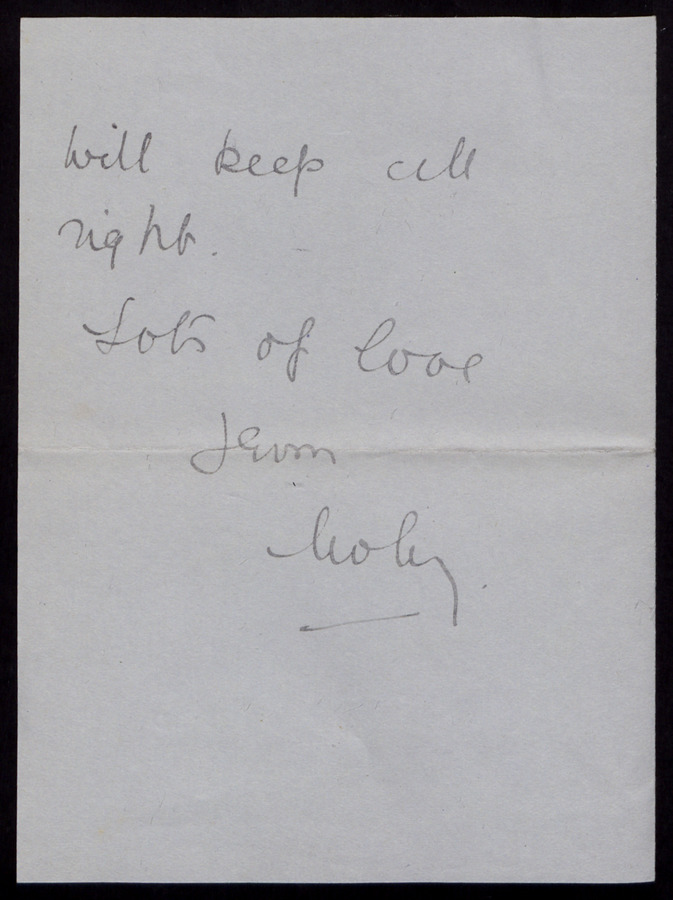 will keep all
right.
Lots of love
from